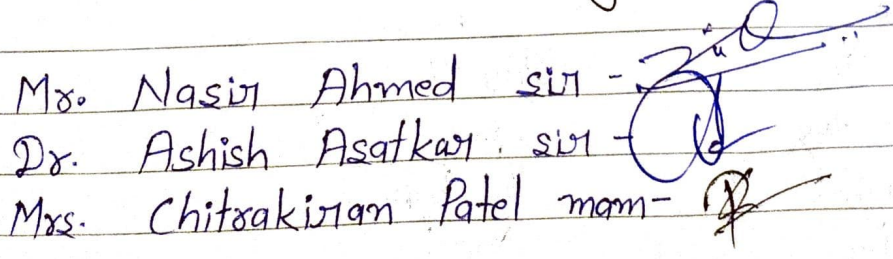 Mr. Nasir Ahmed sir -
Dr. Ashish Asatkar sir -
Mrs. Chitrakiran Patel mam-